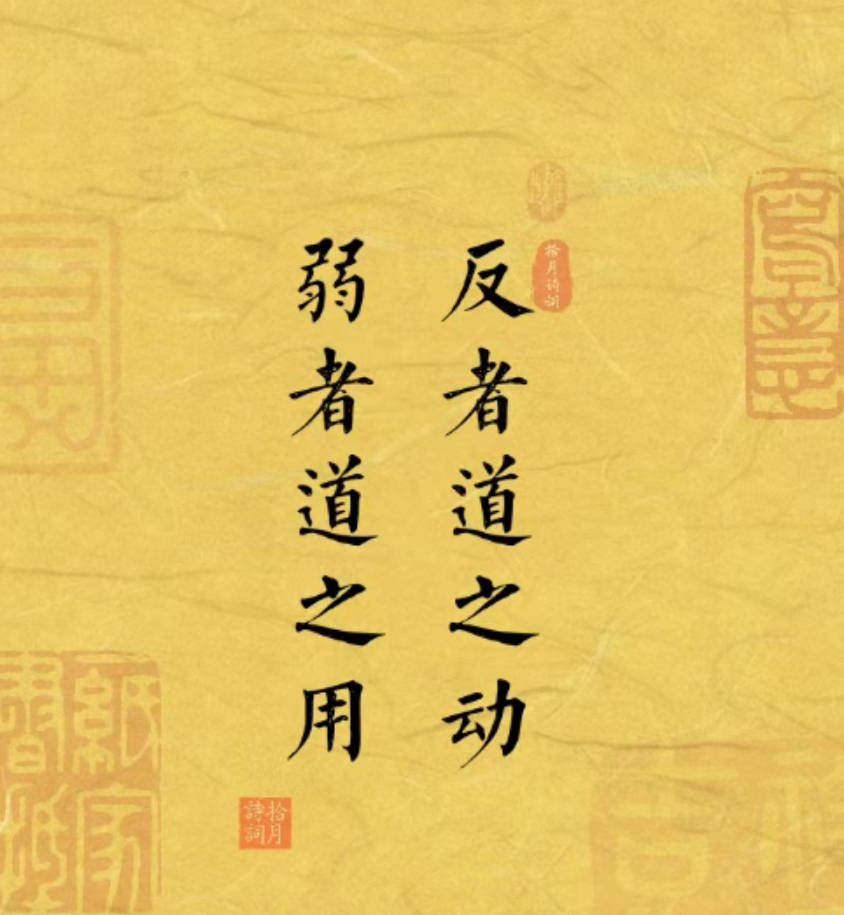 反者道之动
弱者道之用
拾月诗词
拾月
詩詞